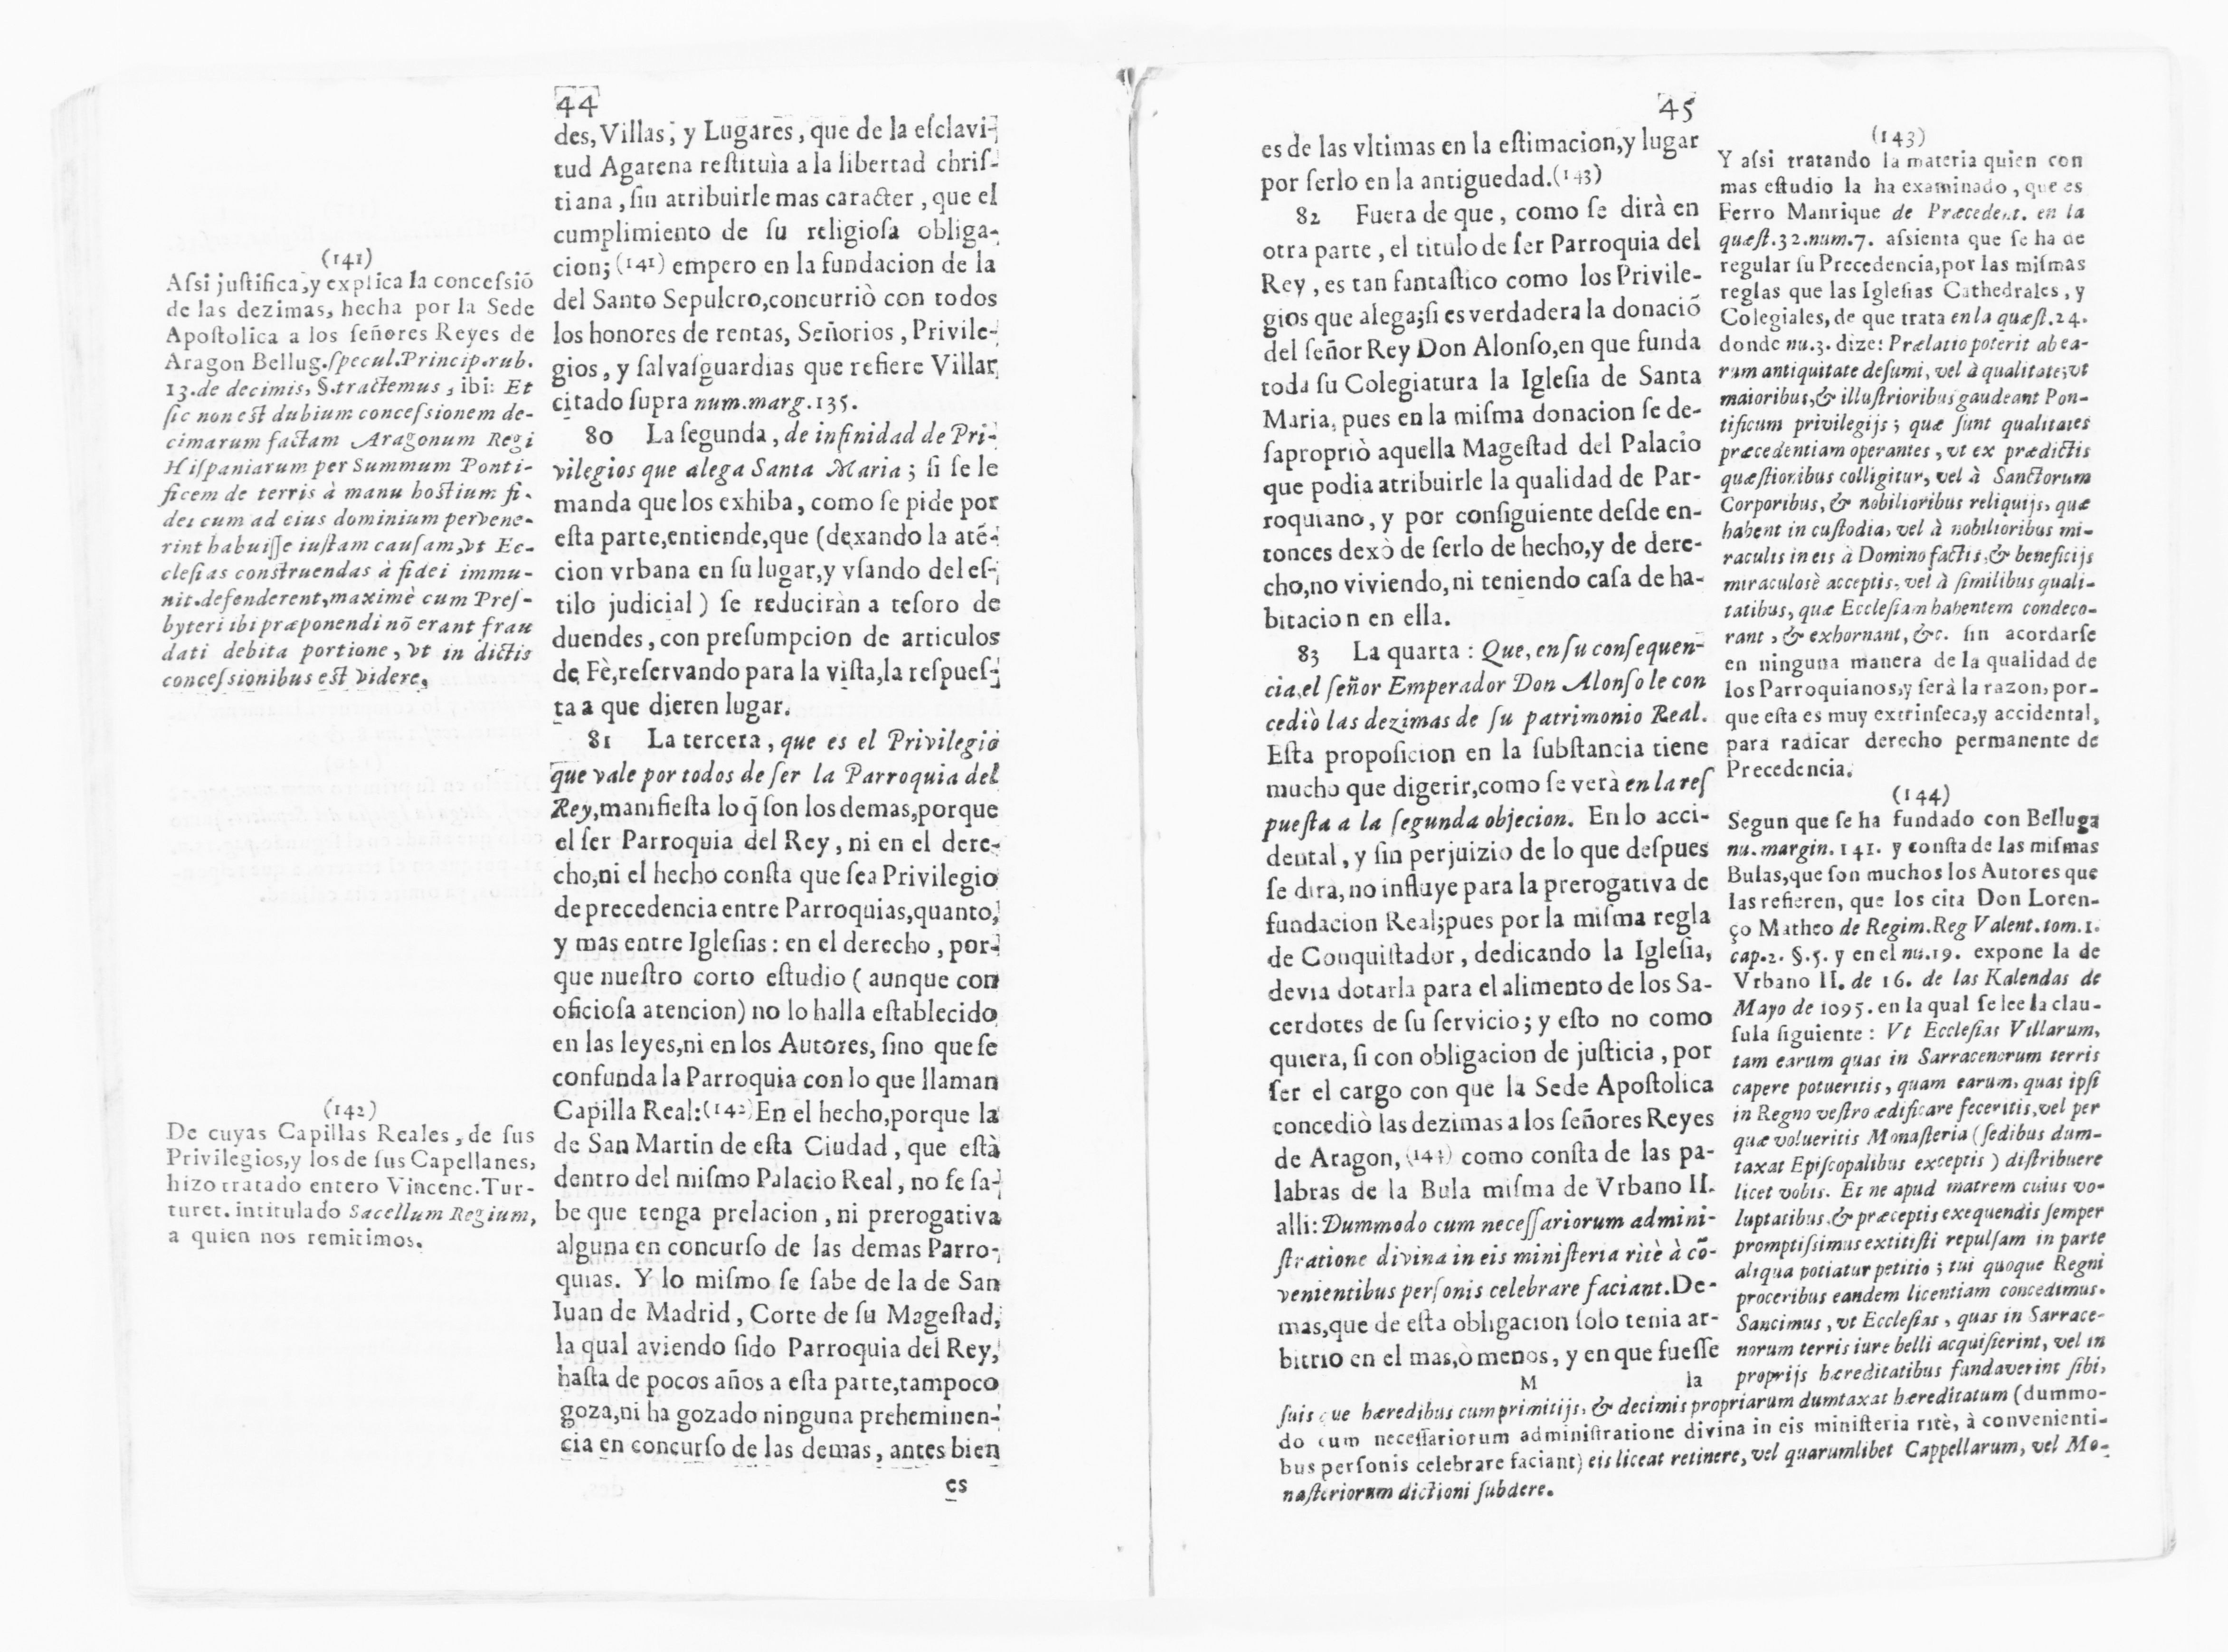 44
des, Villas, y Lugares, que de la esclavi-
tud Agarena restituìa a la libertad chris-
tiana, sin atribuirle mas caracter, que el
cumplimiento de su religiosa obliga-
cion; (141) empero en la fundacion de la
del Santo Sepulcro, concurriò con todos
los honores de rentas, Señorios, Privile-
gios, y salvasguardias que refiere Villar,
citado supra num. marg. 135.
80 La segunda, de infinidad de Pri-
vilegios que alega Santa Maria; si se le
manda que los exhiba, como se pide por
esta parte, entiende, que (dexando la atē-
cion vrbana en su lugar, y vsando del es-
tilo judicial) se reduciràn a tesoro de
duendes, con presumpcion de articulos
de Fè, reservando para la vista, la respues-
ta a que dieren lugar.
81 La tercera, que es el Privilegio
que vale por todos de ser la Parroquia del
Rey, manifiesta lo q̃ son los demas, porque
el ser Parroquia del Rey, ni en el dere-
cho, ni el hecho consta que sea Privilegio
de precedencia entre Parroquias, quanto,
y mas entre Iglesias: en el derecho, por-
que nuestro corto estudio (aunque con
oficiosa atencion) no lo halla establecido
en las leyes, ni en los Autores, sino que se
confunda la Parroquia con lo que llaman
Capilla Real: (142) En el hecho, porque la
de San Martin de esta Ciudad, que està
dentro del mismo Palacio Real, no se sa-
be que tenga prelacion, ni prerogativa
alguna en concurso de las demas Parro-
quias. Y lo mismo se sabe de la de San
Iuan de Madrid, Corte de su Magestad,
la qual aviendo sido Parroquia del Rey,
hasta de pocos años a esta parte, tampoco
goza, ni ha gozado ninguna preheminen-
cia en concurso de las demas, antes bien
es
(141)
Assi justifica, y explica la concessiō
de las dezimas, hecha por la Sede
Apostolica a los señores Reyes de
Aragon Bellug. specul. Princip. rub.
13. de decimis, §. tractemus, ibi: Et
sic non est dubium concessionem de-
cimarum factam Aragonum Regi
Hispaniarum per Summum Ponti-
ficem de terris à manu hostium fi-
dei cum ad eius dominium pervene-
rint habuisse iustam causam, vt Ec-
clesias construendas à fidei immu-
nit. defenderent, maximè cum Pres-
byteri ibi præponendi nō erant frau
dati debita portione, vt in dictis
concessionibus est videre.
(142)
De cuyas Capillas Reales, de sus
Privilegios, y los de sus Capellanes,
hizo tratado entero Vincenc. Tur-
turet. intitulado Sacellum Regium,
a quien nos remitimos.
45
es de las vltimas en la estimacion, y lugar
por serlo en la antiguedad. (143)
82 Fuera de que, como se dirà en
otra parte, el titulo de ser Parroquia del
Rey, es tan fantastico como los Privile-
gios que alega; si es verdadera la donaciō
del señor Rey Don Alonso, en que funda
toda su Colegiatura la Iglesia de Santa
Maria, pues en la misma donacion se de-
sapropriò aquella Magestad del Palacio
que podia atribuirle la qualidad de Par-
roquiano, y por consiguiente desde en-
tonces dexò de serlo de hecho, y de dere-
cho, no viviendo, ni teniendo casa de ha-
bitacion en ella.
83 La quarta: Que, en su consequen-
cia, el señor Emperador Don Alonso le con
cediò las dezimas de su patrimonio Real.
Esta proposicion en la substancia tiene
mucho que digerir, como se verà en la res
puesta a la segunda objecion. En lo acci-
dental, y sin perjuizio de lo que despues
se dirà, no influye para la prerogativa de
fundacion Real; pues por la misma regla
de Conquistador, dedicando la Iglesia,
devia dotarla para el alimento de los Sa-
cerdotes de su servicio; y esto no como
quiera, si con obligacion de justicia, por
ser el cargo con que la Sede Apostolica
concediò las dezimas a los señores Reyes
de Aragon, (144) como consta de las pa-
labras de la Bula misma de Vrbano II.
alli: Dummodo cum necessariorum admini-
stratione divina in eis ministeria ritè à cō-
venientibus personis celebrare faciant. De-
mas, que de esta obligacion solo tenia ar-
bitrio en el mas, ò menos, y en que fuesse
M la
(143)
Y assi tratando la materia quien con
mas estudio la ha examinado, que es
Ferro Manrique de Præcedent. en la
quæst. 32. num. 7. assienta que se ha de
regular su Precedencia, por las mismas
reglas que las Iglesias Cathedrales, y
Colegiales, de que trata en la quæst. 24.
donde nu. 3. dize: Prælatio poterit ab ea-
rum antiquitate desumi, vel à qualitate, vt
maioribus, & illustrioribus gaudeant Pon-
tificum privilegijs; quæ sunt qualitates
præcedentiam operantes, vt ex prædictis
quæstionibus colligitur, vel à Sanctorum
Corporibus, & nobilioribus reliquijs, quæ
habent in custodia, vel à nobilioribus mi-
raculis in eis à Domino factis, & beneficijs
miraculosè acceptis, vel à similibus quali-
tatibus, quæ Ecclesiam habentem condeco-
rant, & exhornant, &c. sin acordarse
en ninguna manera de la qualidad de
los Parroquianos, y serà la razon, por-
que esta es muy extrinseca, y accidental,
para radicar derecho permanente de
Precedencia.
(144)
Segun que se ha fundado con Belluga
nu. margin. 141. y consta de las mismas
Bulas, que son muchos los Autores que
las refieren, que los cita Don Loren-
ço Matheo de Regim. Reg Valent. tom. 1.
cap. 2. §. 5. y en el nu. 19. expone la de
Vrbano II. de 16. de las Kalendas de
Mayo de 1095. en la qual se lee la clau-
sula siguiente: Vt Ecclesias Villarum,
tam earum quas in Sarracenorum terris
capere potueritis, quam earum, quas ipsi
in Regno vestro ædificare feceritis, vel per
quæ volueritis Monasteria (sedibus dum-
taxat Episcopalibus exceptis) distribuere
licet vobis. Et ne apud matrem cuius vo-
luptatibus, & præceptis exequendis semper
promptissimus extitisti repulsam in parte
aliqua potiatur petitio; tui quoque Regni
proceribus eandem licentiam concedimus.
Sancimus, vt Ecclesias, quas in Sarrace-
norum terris iure belli acquisierint, vel in
proprijs hæreditatibus fundaverint sibi,
suisque hæredibus cum primitijs, & decimis propriarum dumtaxat hæreditatum (dummo-
do cum necessariorum administratione divina in eis ministeria ritè, à convenienti-
bus personis celebrare faciant) eis liceat retinere, vel quarumlibet Cappellarum, vel Mo-
nasteriorum dictioni subdere.